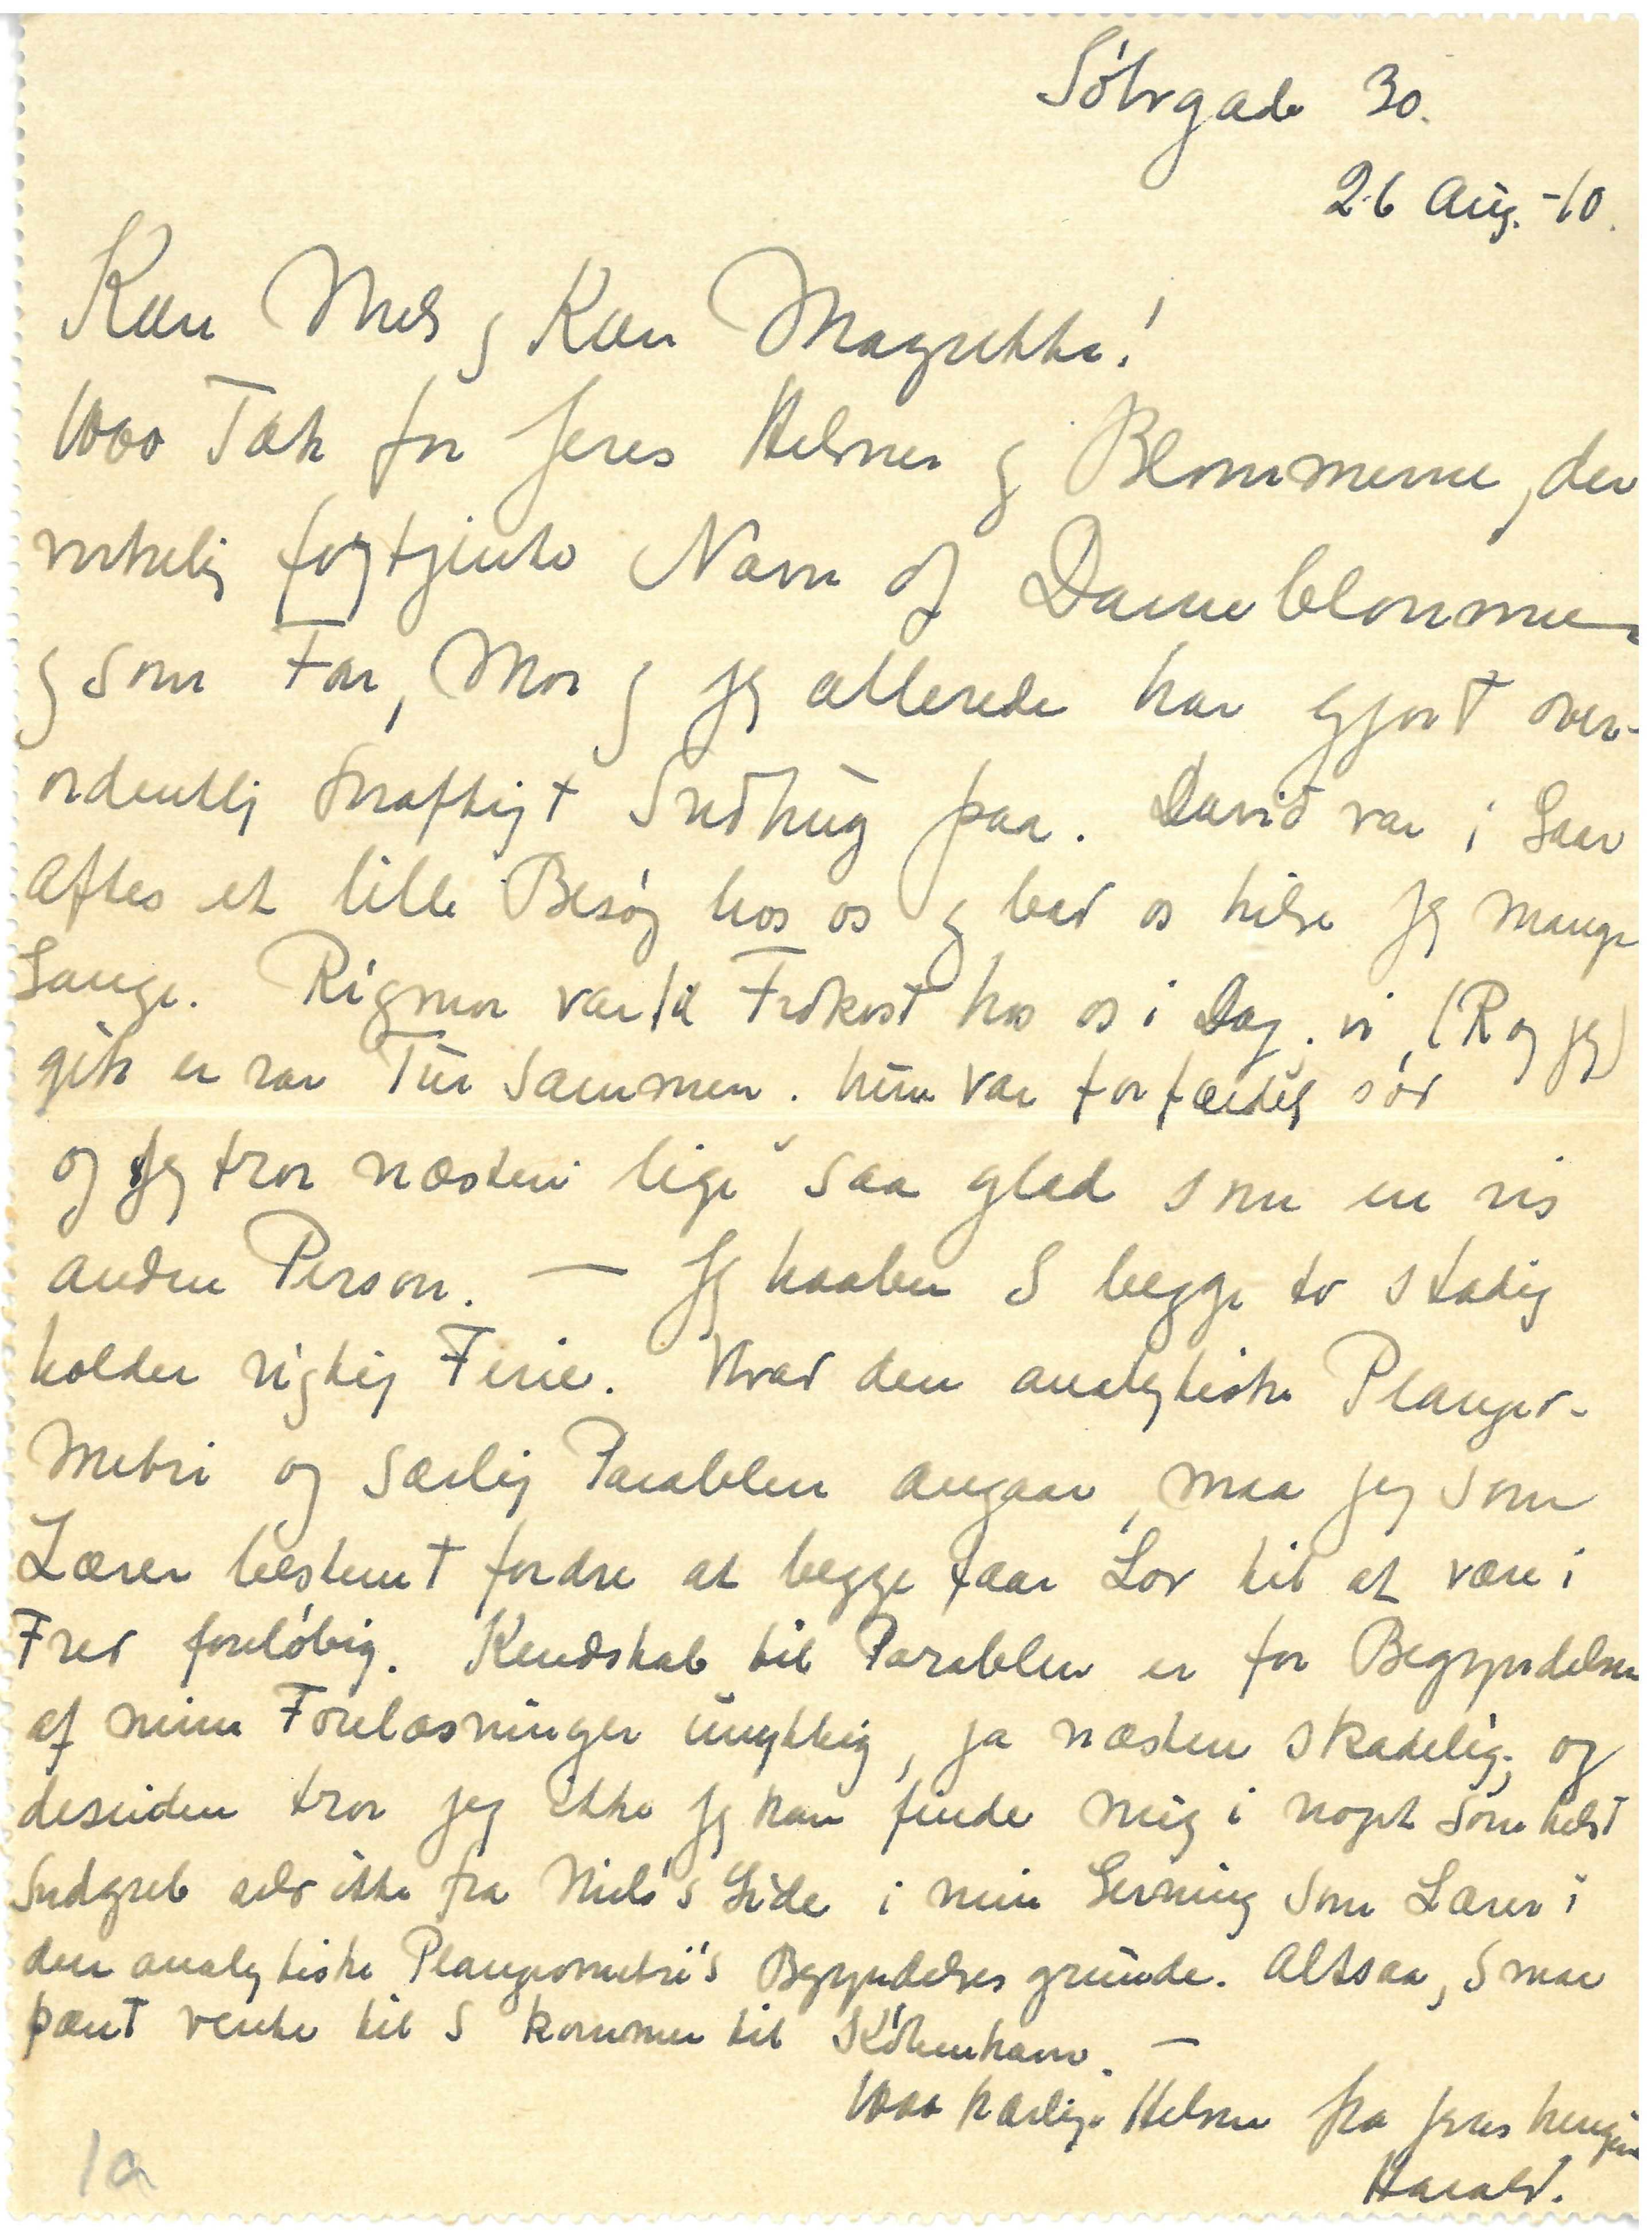 Sölvgade 30.
26 Aug. -10.
Kære Niels og Kære Magrethe!
1000 Tak for Jeres Hilsner og Blommerne, der
virkelig fortjente Navn af Dameblommer
og som Far, Mor og jeg allerede har gjort over-
ordentlig kraftigt Indhug paa. David var i Gaar
Aftes et lille Besøg hos os og bad os hilse Jer mange
Gange. Rigmor var til Frokost hos os i Dag. vi, (R og jeg)
gik en rar Tur sammen. hun var forfærdelig sød
og jeg tror næsten lige saa glad som en vis
anden Person. — Jeg haaber I begge to stadig
holder rigtig Ferie. Hvad den analytiske Plangeo-
metri og særlig Parablen angaar, maa jeg som
Lærer bestemt fordre at begge faar Lov til at være i
Fred foreløbig. Kendskab til Parablen er for Begyndelsen
af mine Forelæsninger unyttig, ja næsten skadelig; og
desuden tror jeg ikke jeg kan finde mig i noget som helst
Indgreb selv ikke fra Niels's Side i min Gerning som Lærer i
den analytiske Plangeometri's Begyndelsesgrunde. Altsaa, I maa
pænt vente til I kommer til København. —
1000 kærlige Hilsner fra Jeres hengivne
Harald.
1a